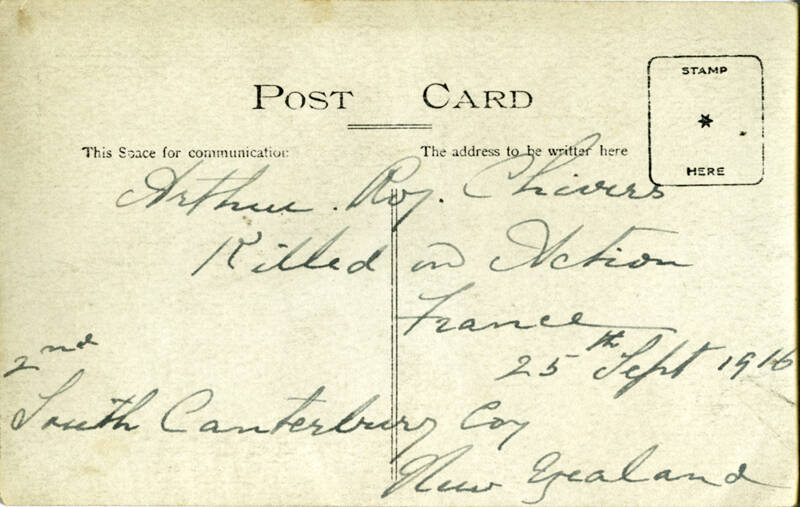 POST CARD
STAMP
HERE
This Space for communication
The address to be written here
Arthur. Roy. Chivers
Killed in Action
France
25th Sept 1916
2nd
South Canterbury Coy
New Zealand